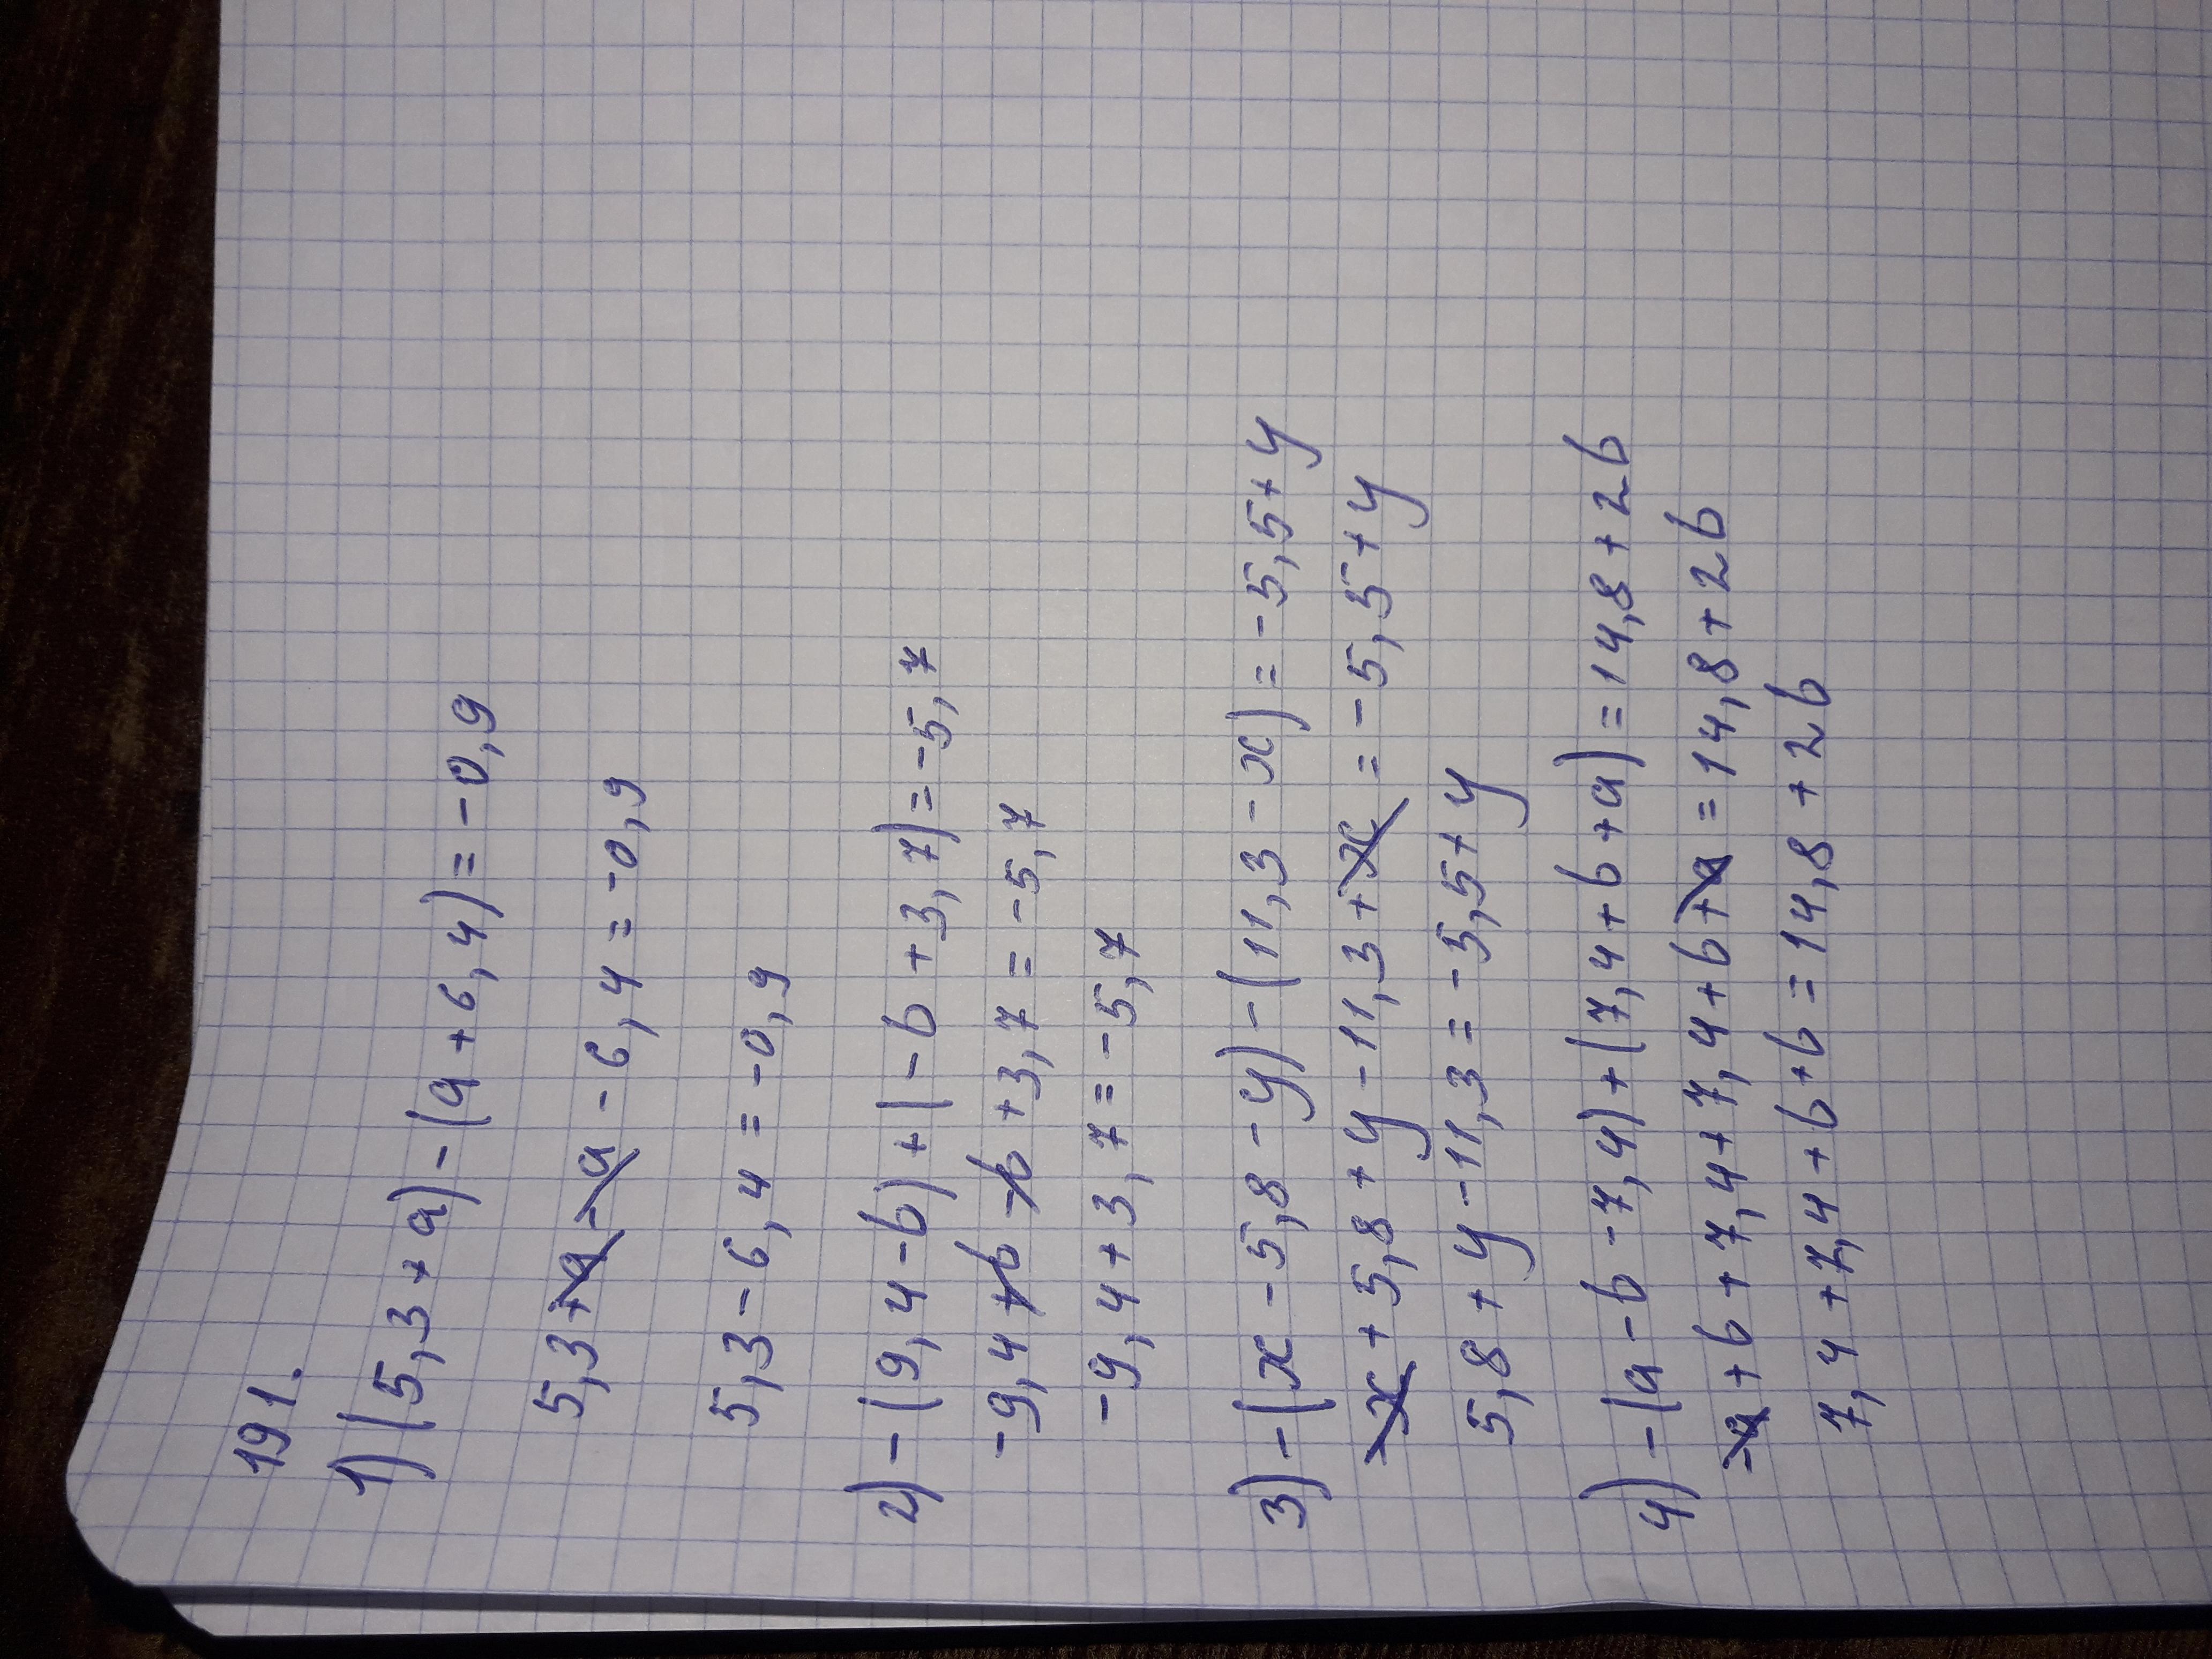 191.
1) (5,3 + a) - (a + 6,4) = -0,9
5,3 + a - a - 6,4 = -0,9
5,3 - 6,4 = -0,9
2) - (9,4 - b) + (- b + 3,7) = -5,7
-9,4 + b - b + 3,7 = -5,7
-9,4 + 3,7 = -5,7
3) - (x - 5,8 - y) - (11,3 - x) = -5,5 + y
-x + 5,8 + y - 11,3 + x = -5,5 + y
5,8 + y - 11,3 = -5,5 + y
4) - (a - b - 7,4) + (7,4 + b + a) = 14,8 + 2b
-a + b + 7,4 + 7,4 + b + a = 14,8 + 2b
7,4 + 7,4 + b + b = 14,8 + 2b